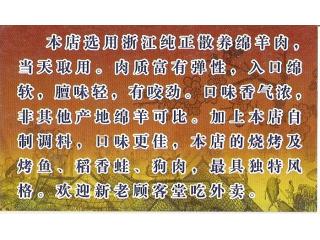 本店选用浙江纯正散养绵羊肉，
当天取用。肉质富有弹性，入口绵
软，膻味轻，有咬劲。口味香气浓，
非其他产地绵羊可比。加上本店自
制调料，口味更佳，本店的烧烤及
烤鱼、稻香蛙、狗肉，最具独特风
格。欢迎新老顾客堂吃外卖。